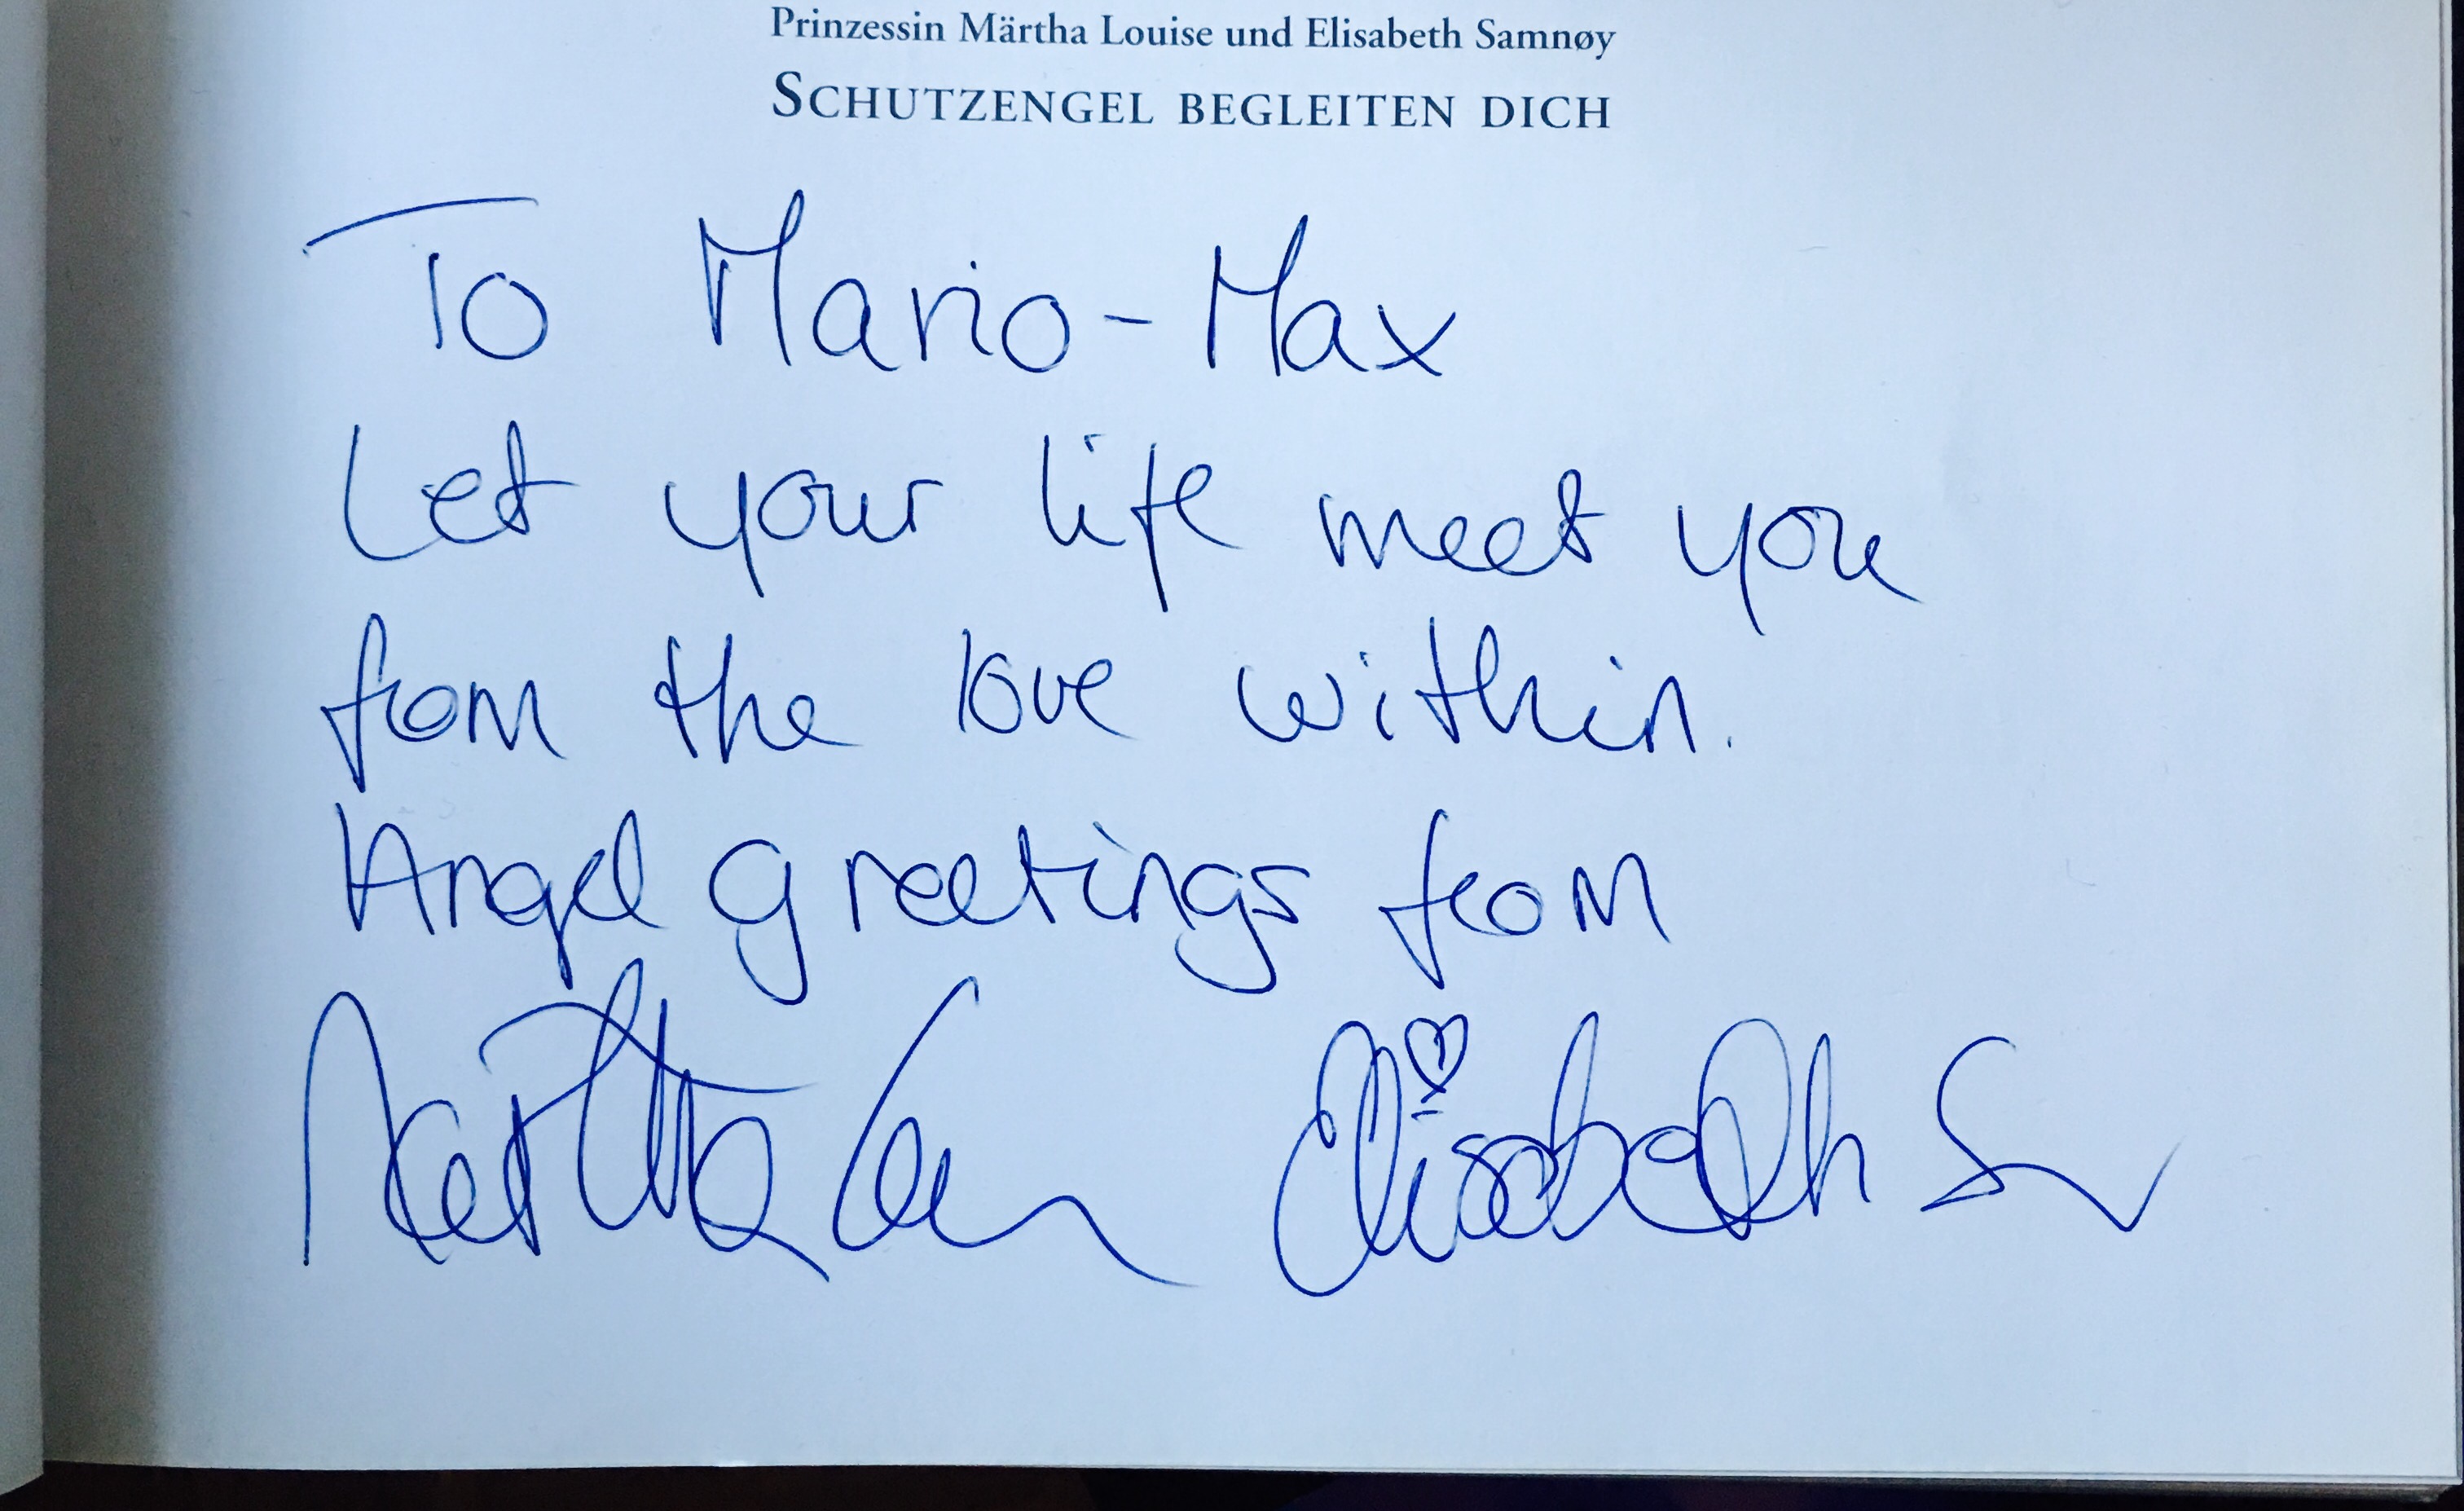 Prinzessin Märtha Louise und Elisabeth Samnøy
SCHUTZENGEL BEGLEITEN DICH
To Mario-Max
Let your life meet you
from the love within.
Angel greetings from
Märtha Elisabeth S